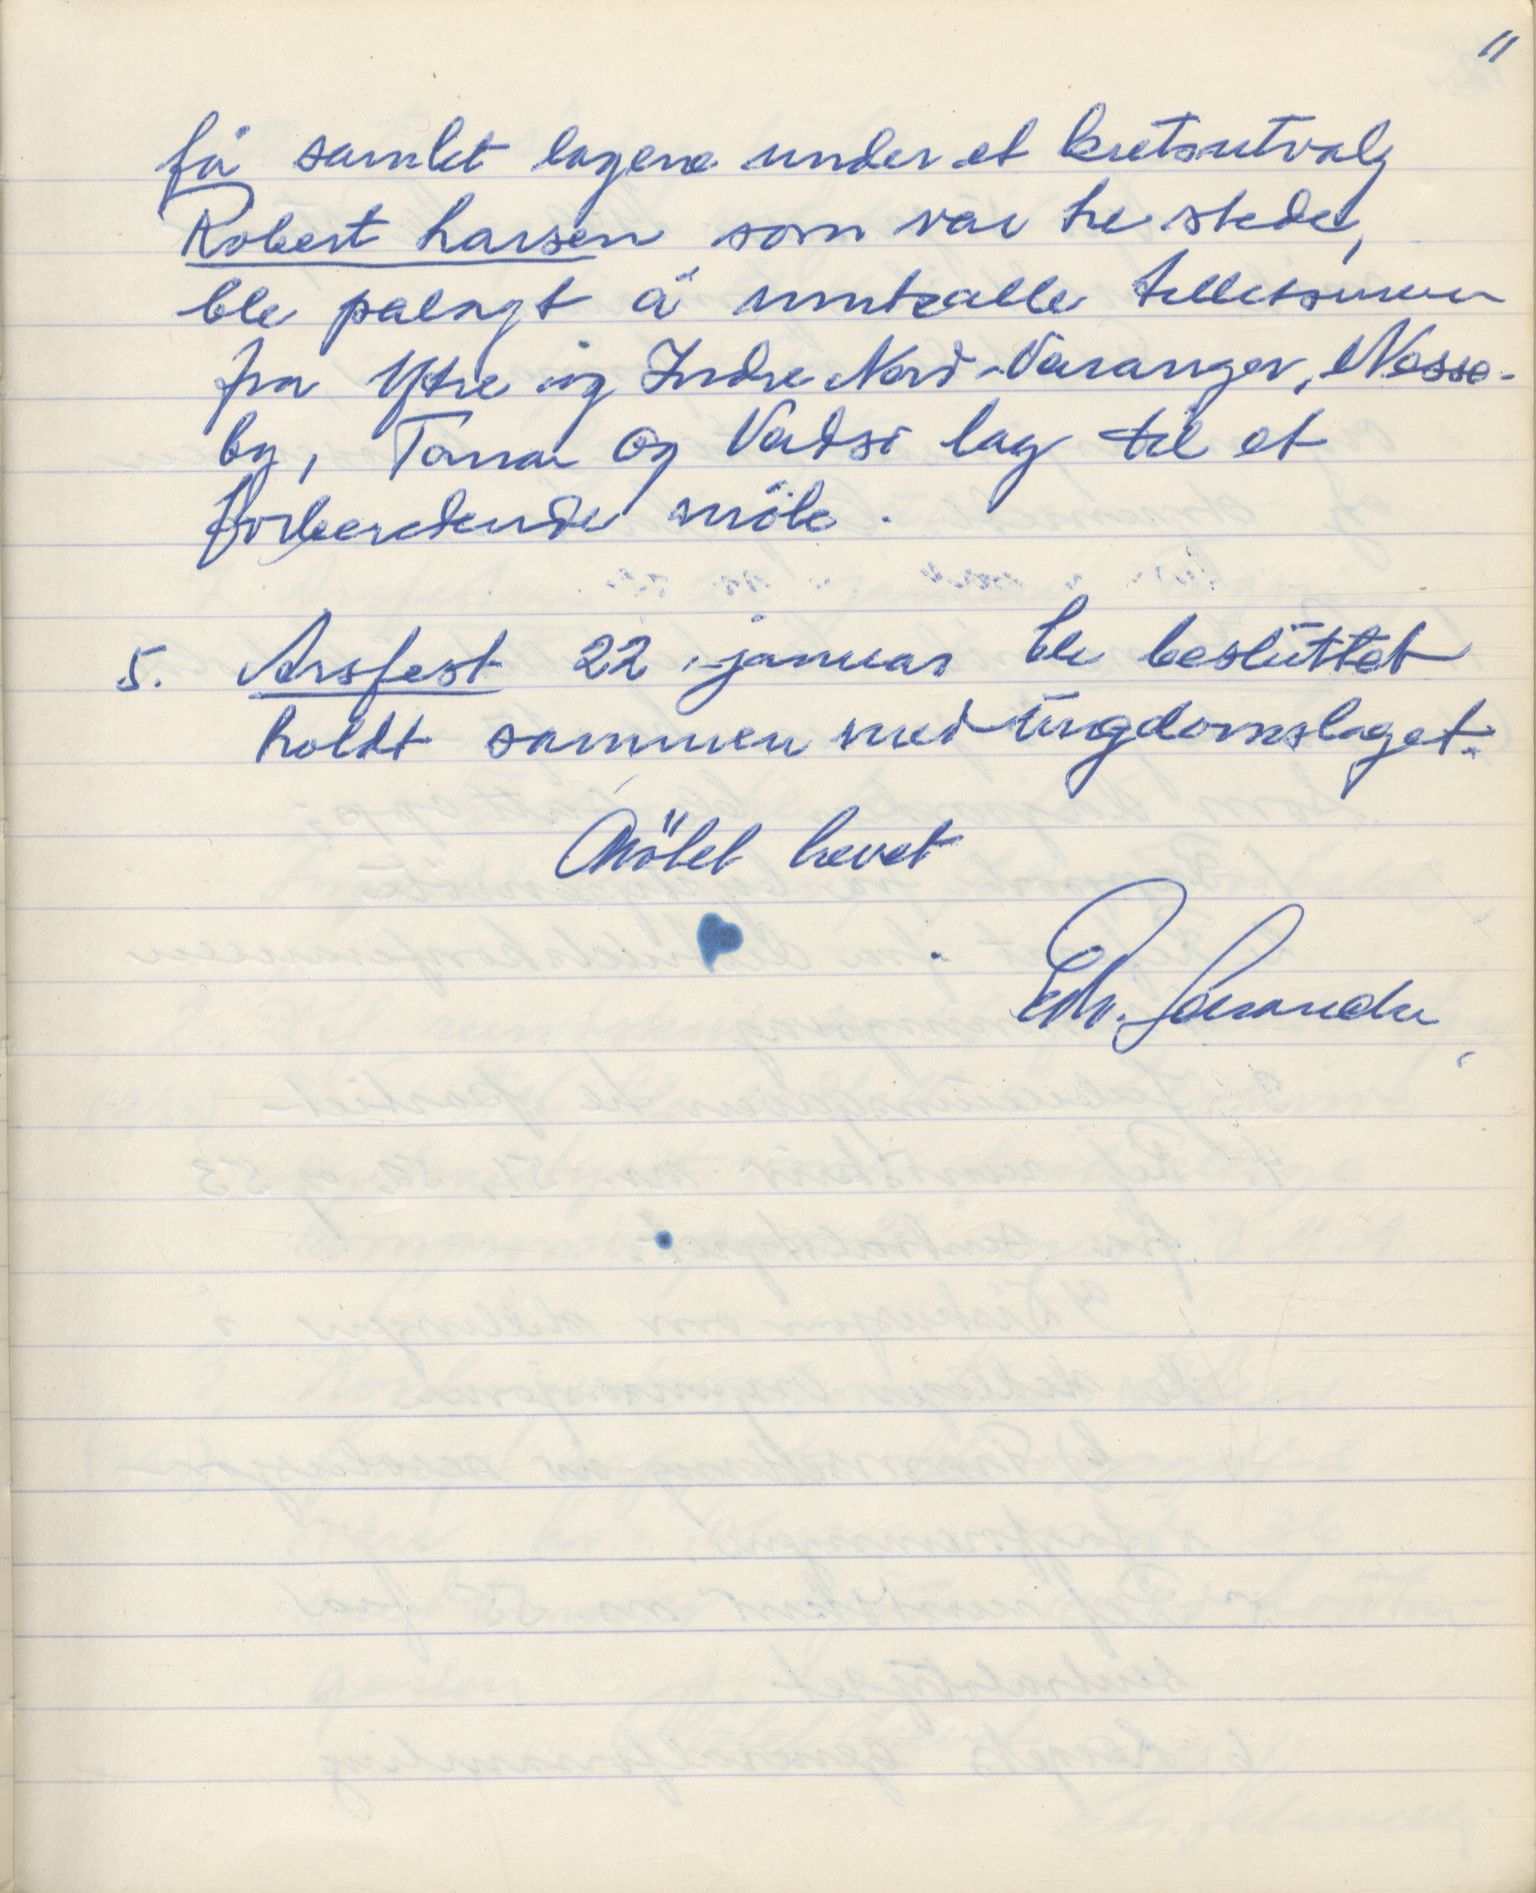 11
få samlet lagene under et kretsutvalg
Robert Larsen som var tilstede,
ble pålagt å innkalle tillitsmenn
fra Ytre og Indre Nord-Varanger, Nesse-
by, Tana og Vadsö lag til et
forberedende möte.
5. Årsfest 22 januar ble besluttet
holdt sammen med ungdomslaget.
Mötet hevet
Edv.